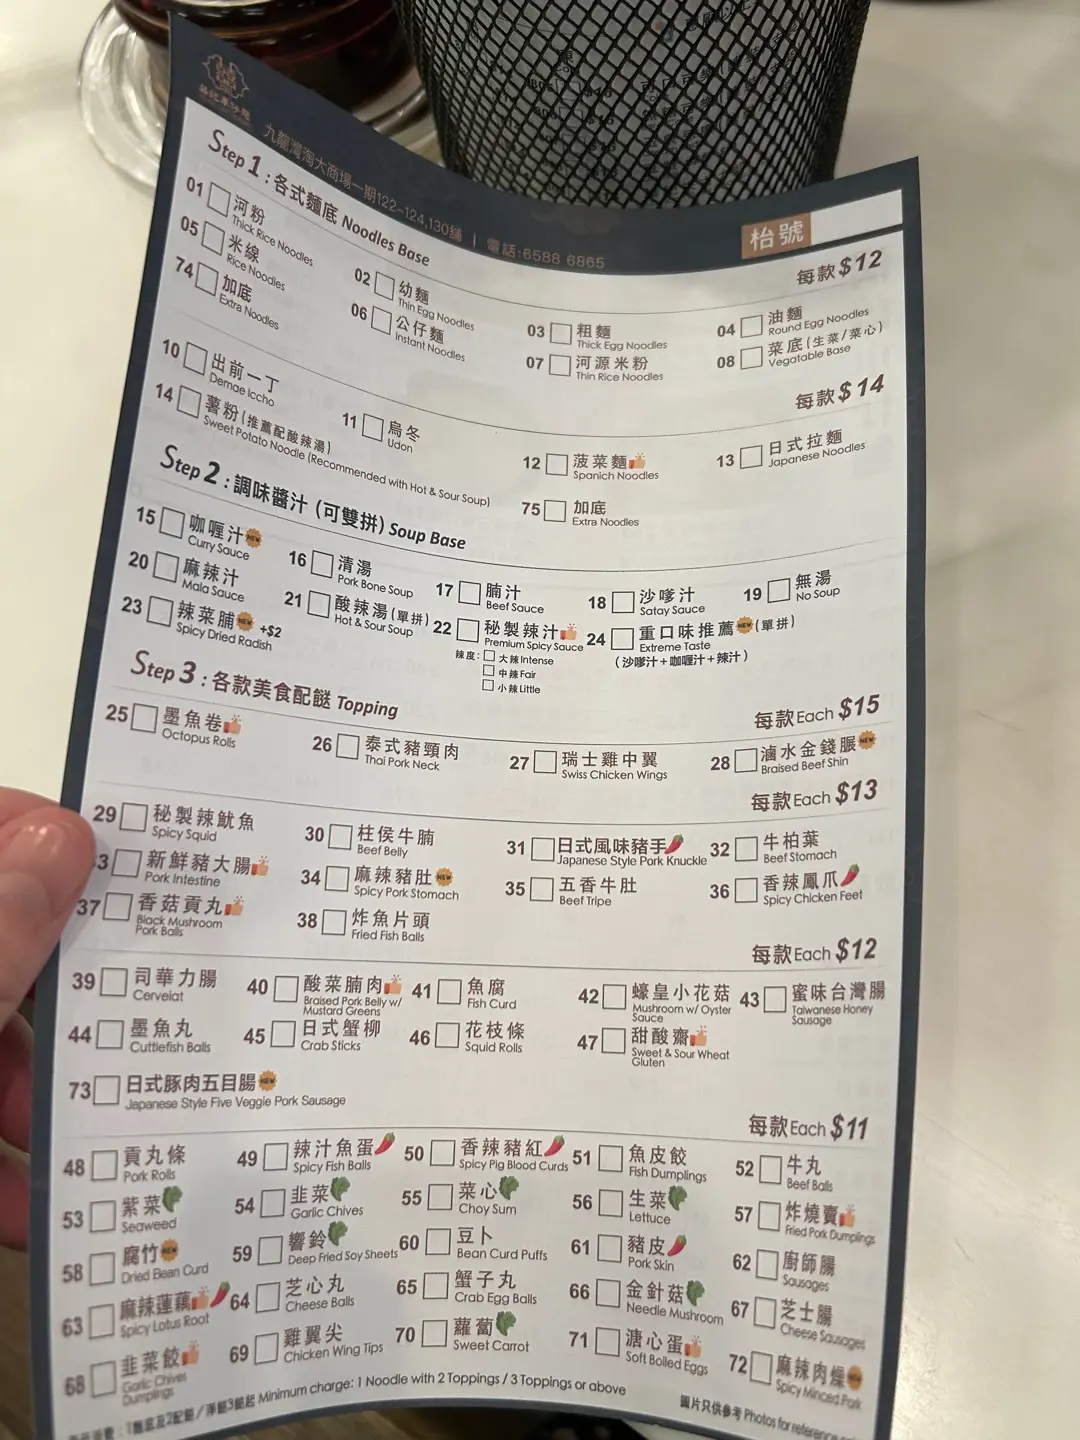 九龍灣淘大商場一期122-124,130舖 | 電話:6588 6865
枱號
Step 1 : 各式麵底 Noodles Base
每款 $12
01 河粉 Thick Rice Noodles
02 幼麵 Thin Egg Noodles
03 粗麵 Thick Egg Noodles
04 油麵 Round Egg Noodles
05 米線 Rice Noodles
06 公仔麵 Instant Noodles
07 河源米粉 Thin Rice Noodles
08 菜底(生菜/菜心) Vegatable Base
74 加底 Extra Noodles
每款 $14
10 出前一丁 Demae Iccho
11 烏冬 Udon
12 菠菜麵 Spanich Noodles
13 日式拉麵 Japanese Noodles
14 薯粉(推薦配酸辣湯) Sweet Potato Noodle (Recommended with Hot & Sour Soup)
75 加底 Extra Noodles
Step 2 : 調味醬汁 (可雙拼) Soup Base
15 咖喱汁 NEW Curry Sauce
16 清湯 Pork Bone Soup
17 腩汁 Beef Sauce
18 沙嗲汁 Satay Sauce
19 無湯 No Soup
20 麻辣汁 Mala Sauce
21 酸辣湯(單拼) Hot & Sour Soup
22 秘製辣汁 Premium Spicy Sauce
辣度: 大辣 Intense
中辣 Fair
小辣 Little
23 辣菜脯 NEW +$2 Spicy Dried Radish
24 重口味推薦 NEW (單拼) Extreme Taste
(沙嗲汁+咖喱汁+辣汁)
Step 3 : 各款美食配餸 Topping
每款Each $15
25 墨魚卷 Octopus Rolls
26 泰式豬頸肉 Thai Pork Neck
27 瑞士雞中翼 Swiss Chicken Wings
28 滷水金錢𦟌 NEW Braised Beef Shin
每款Each $13
29 秘製辣魷魚 Spicy Squid
30 柱侯牛腩 Beef Belly
31 日式風味豬手 Japanese Style Pork Knuckle
32 牛柏葉 Beef Stomach
3 新鮮豬大腸 Pork Intestine
34 麻辣豬肚 NEW Spicy Pork Stomach
35 五香牛肚 Beef Tripe
36 香辣鳳爪 Spicy Chicken Feet
37 香菇貢丸 Black Mushroom Pork Balls
38 炸魚片頭 Fried Fish Balls
每款Each $12
39 司華力腸 Cervelat
40 酸菜腩肉 Braised Pork Belly w/ Mustard Greens
41 魚腐 Fish Curd
42 蠔皇小花菇 Mushroom w/ Oyster Sauce
43 蜜味台灣腸 Taiwanese Honey Sausage
44 墨魚丸 Cuttlefish Balls
45 日式蟹柳 Crab Sticks
46 花枝條 Squid Rolls
47 甜酸齋 Sweet & Sour Wheat Gluten
73 日式豚肉五目腸 NEW Japanese Style Five Veggie Pork Sausage
每款Each $11
48 貢丸條 Pork Rolls
49 辣汁魚蛋 Spicy Fish Balls
50 香辣豬紅 Spicy Pig Blood Curds
51 魚皮餃 Fish Dumplings
52 牛丸 Beef Balls
53 紫菜 Seaweed
54 韭菜 Garlic Chives
55 菜心 Choy Sum
56 生菜 Lettuce
57 炸燒賣 Fried Pork Dumplings
58 腐竹 NEW Dried Bean Curd
59 響鈴 Deep Fried Soy Sheets
60 豆卜 Bean Curd Puffs
61 豬皮 Pork Skin
62 廚師腸 Sausages
63 麻辣蓮藕 Spicy Lotus Root
64 芝心丸 Cheese Balls
65 蟹子丸 Crab Egg Balls
66 金針菇 Needle Mushroom
67 芝士腸 Cheese Sausages
68 韭菜餃 Garlic Chives Dumplings
69 雞翼尖 Chicken Wing Tips
70 蘿蔔 Sweet Carrot
71 溏心蛋 Soft Boiled Eggs
72 麻辣肉燥 Spicy Minced Pork
1麵底及2配餸/淨餸3餸起 Minimum charge: 1 Noodle with 2 Toppings / 3 Toppings or above
圖片只供參考 Photos for reference